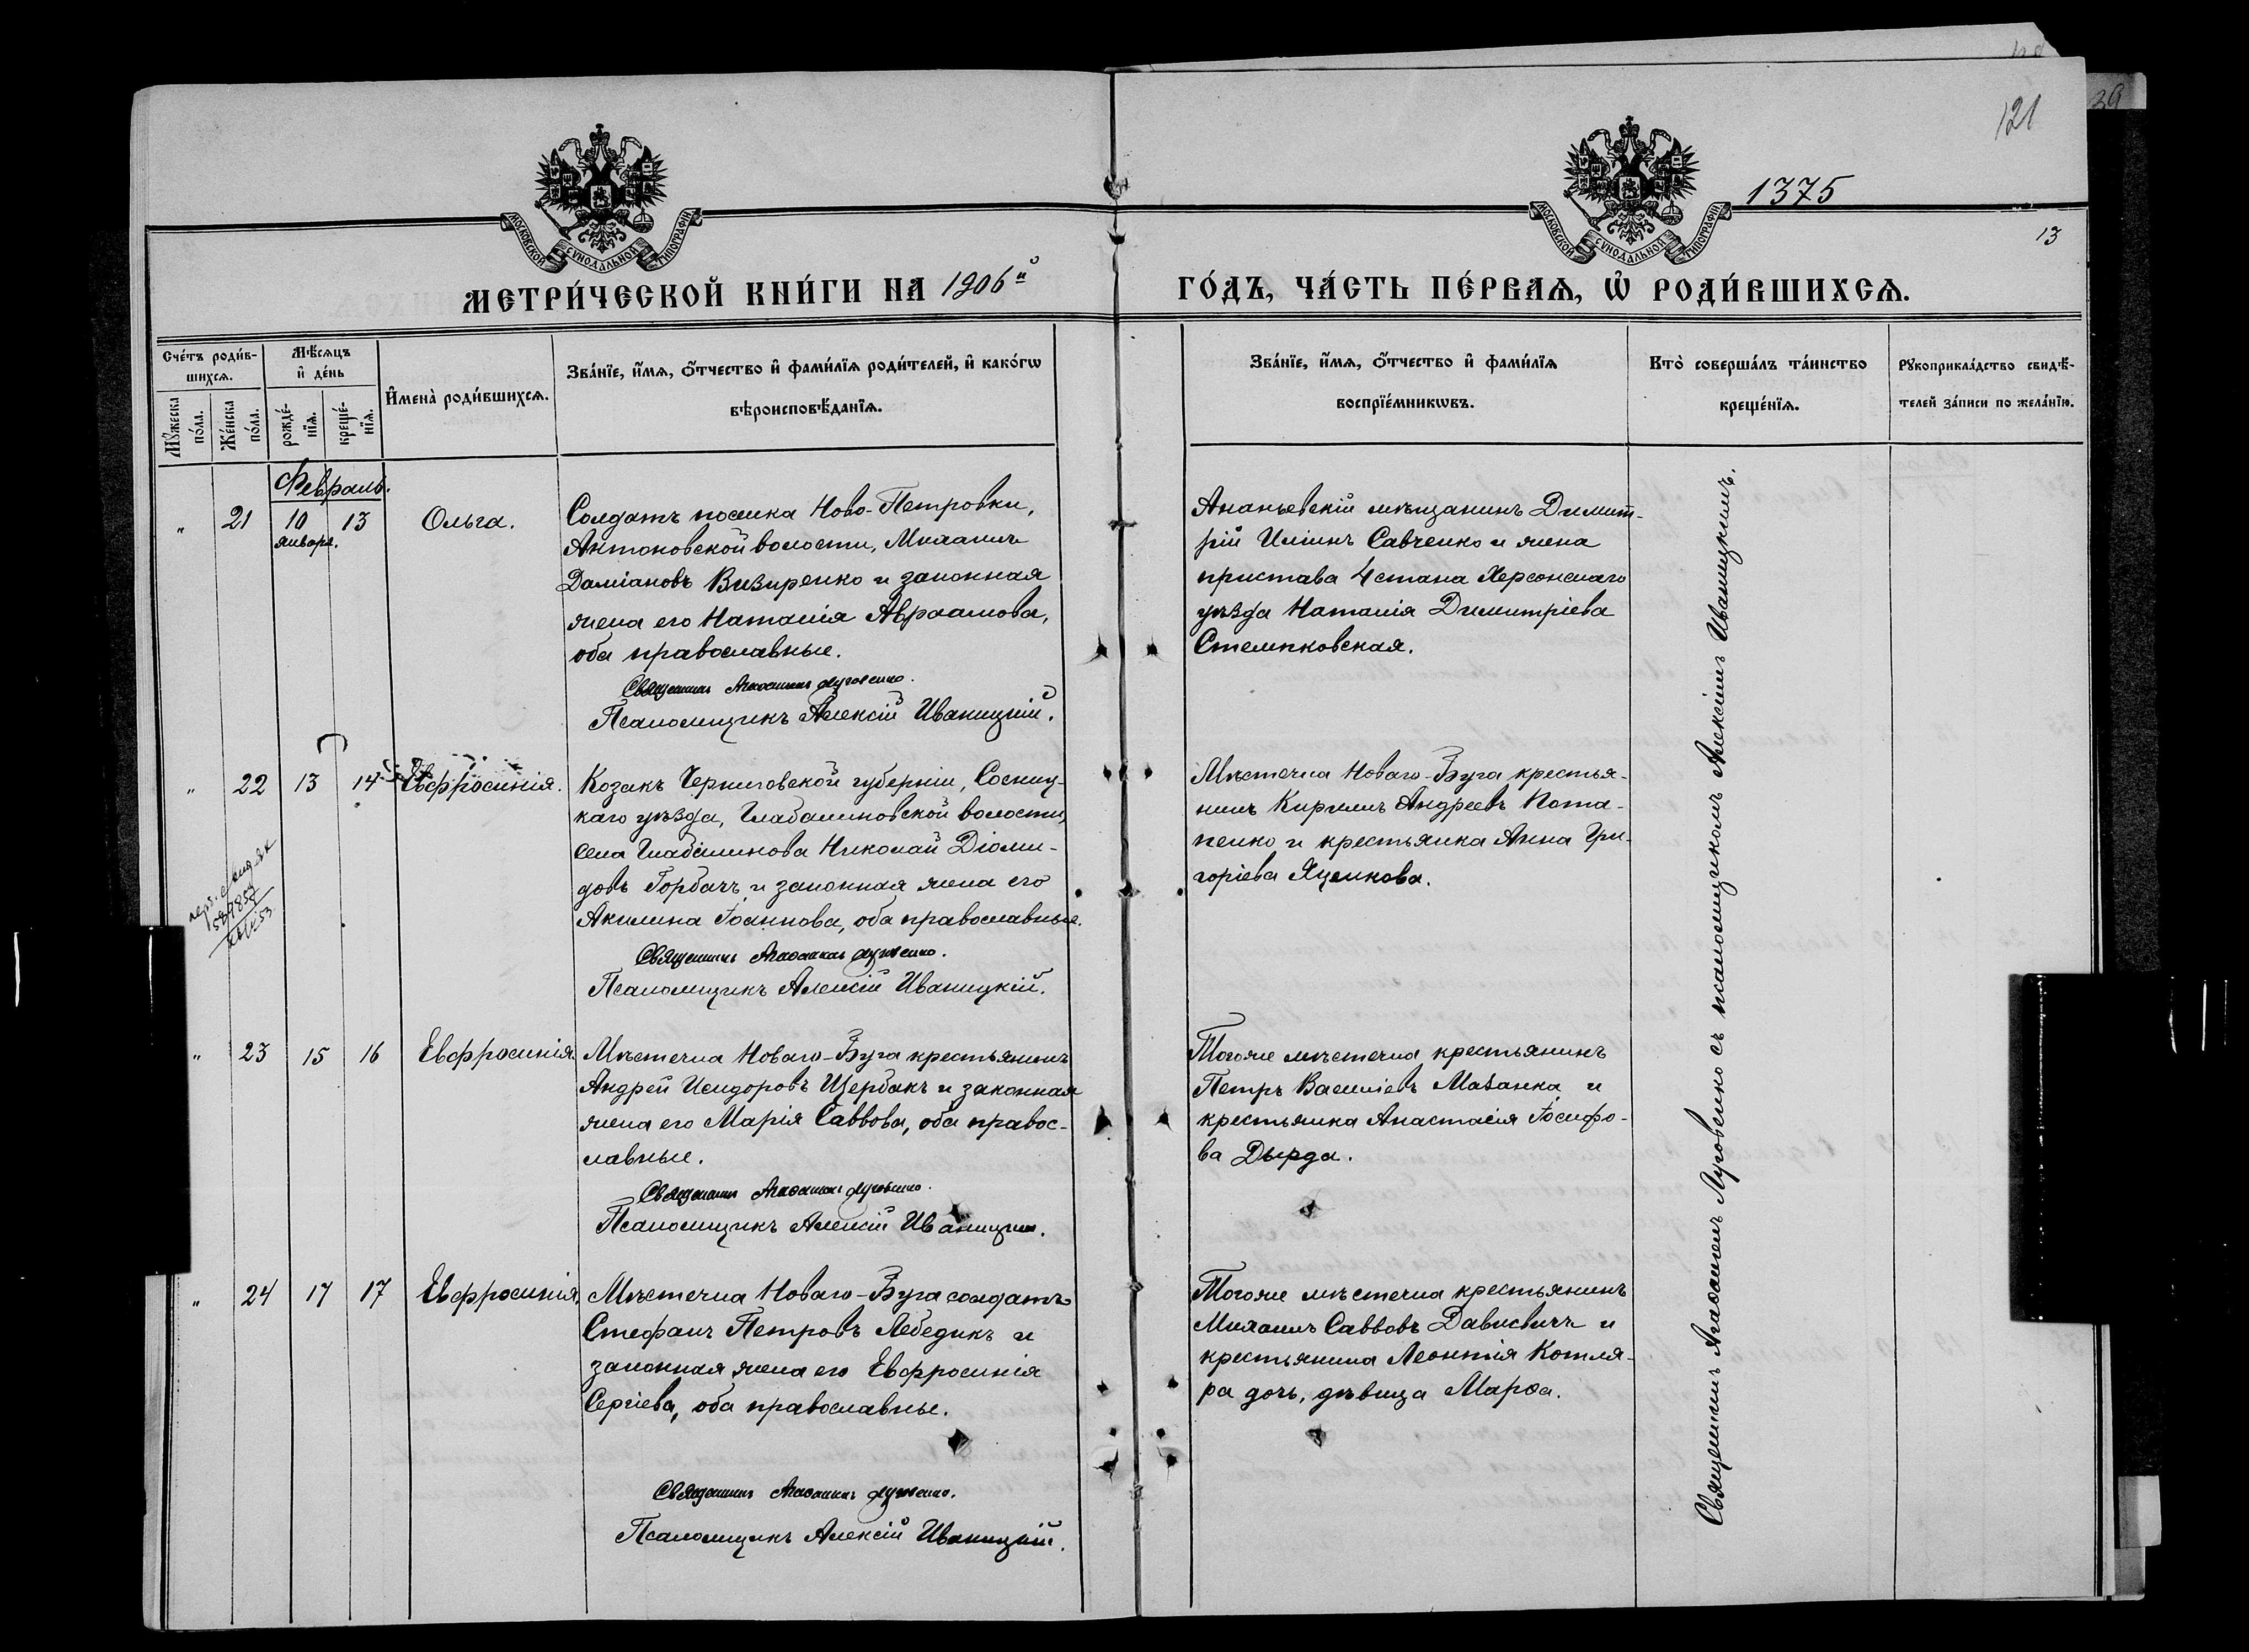 121
39
1375
13
МОСКОВСКОЙ СѴНОДАЛЬНОЙ ТИПОГРАФІИ
МОСКОВСКОЙ СѴНОДАЛЬНОЙ ТИПОГРАФІИ
МЕТРИ́ЧЕСКОЙ КНИ́ГИ НА 1906й
ГО́ДЪ, ЧА́СТЬ ПЕ́РВАѦ, Ѽ РОДИ́ВШИХСѦ.
Сче́тъ роди́в-
шихсѧ.
Мꙋ́жеска по́ла.
Же́нска по́ла.
Мѣ́сѧцъ и҆ де́нь
рожде́-нїѧ.
креще́-нїѧ.
И҆мена̀ роди́вшихсѧ.
Зва́нїе, и҆́мѧ, ѻ҆́тчество и҆ фами́лїѧ роди́телей, и҆ како́гѡ
вѣроисповѣ́данїѧ.
Зва́нїе, и҆́мѧ, ѻ҆́тчество и҆ фами́лїѧ
воспрїе́мникѡвъ.
Кто̀ соверша́лъ та́инство
креще́нїѧ.
Рꙋкоприкла́дство свидѣ́-
телей за́писи по жела́нїю.
Февраль.
" 21 10 13 Ольга.
января.
Солдатъ поселка Ново-Петровки,
Антоновской волости, Михаилъ
Даміановъ Визиренко и законная
жена его Наталія Авраамова,
оба православные.
Священникъ Агаѳангелъ Луговенко.
Псаломщикъ Алексій Иваницкій.
Ананьевскій мѣщанинъ Димит-
рій Иліинъ Савченко и жена
пристава 4 стана Херсонскаго
уѣзда Наталія Димитріева
Стемпковская.
" 22 13 14 Евфросинія.
Козакъ Черниговской губерніи, Сосниц-
каго уѣзда, волости,
села Николай Діоми-
довъ Горбачъ и законная жена его
Акилина Іоаннова, оба православные.
Священникъ Агаѳангелъ Луговенко.
Псаломщикъ Алексій Иваницкій.
Мѣстечка Новаго-Буга крестья-
нинъ Кириллъ Андреевъ Пота-
пенко и крестьянка Анна Гри-
горіева Яценкова.
" 23 15 16 Евфросинія.
Мѣстечка Новаго-Буга крестьянинъ
Андрей Исидоровъ Щербакъ и законная
жена его Марія Саввова, оба правос-
лавные.
Священникъ Агаѳангелъ Луговенко.
Псаломщикъ Алексій Иваницкій.
Тогоже мѣстечка крестьянинъ
Петръ Василіевъ Мазанка и
крестьянка Анастасія Іосифо-
ва Дырда.
" 24 17 17 Евфросинія.
Мѣстечка Новаго-Буга солдатъ
Стефанъ Петровъ Лебедикъ и
законная жена его Евфросинія
Сергіева, оба православные.
Священникъ Агаѳангелъ Луговенко.
Псаломщикъ Алексій Иваницкій.
Тогоже мѣстечка крестьянинъ
Михаилъ Саввовъ Дависвичъ и
крестьянина Леонтія Котля-
ра дочь, дѣвица Марѳа.
Священникъ Агаѳангелъ Луговенко съ псаломщикомъ Алексіемъ Иваницкимъ.